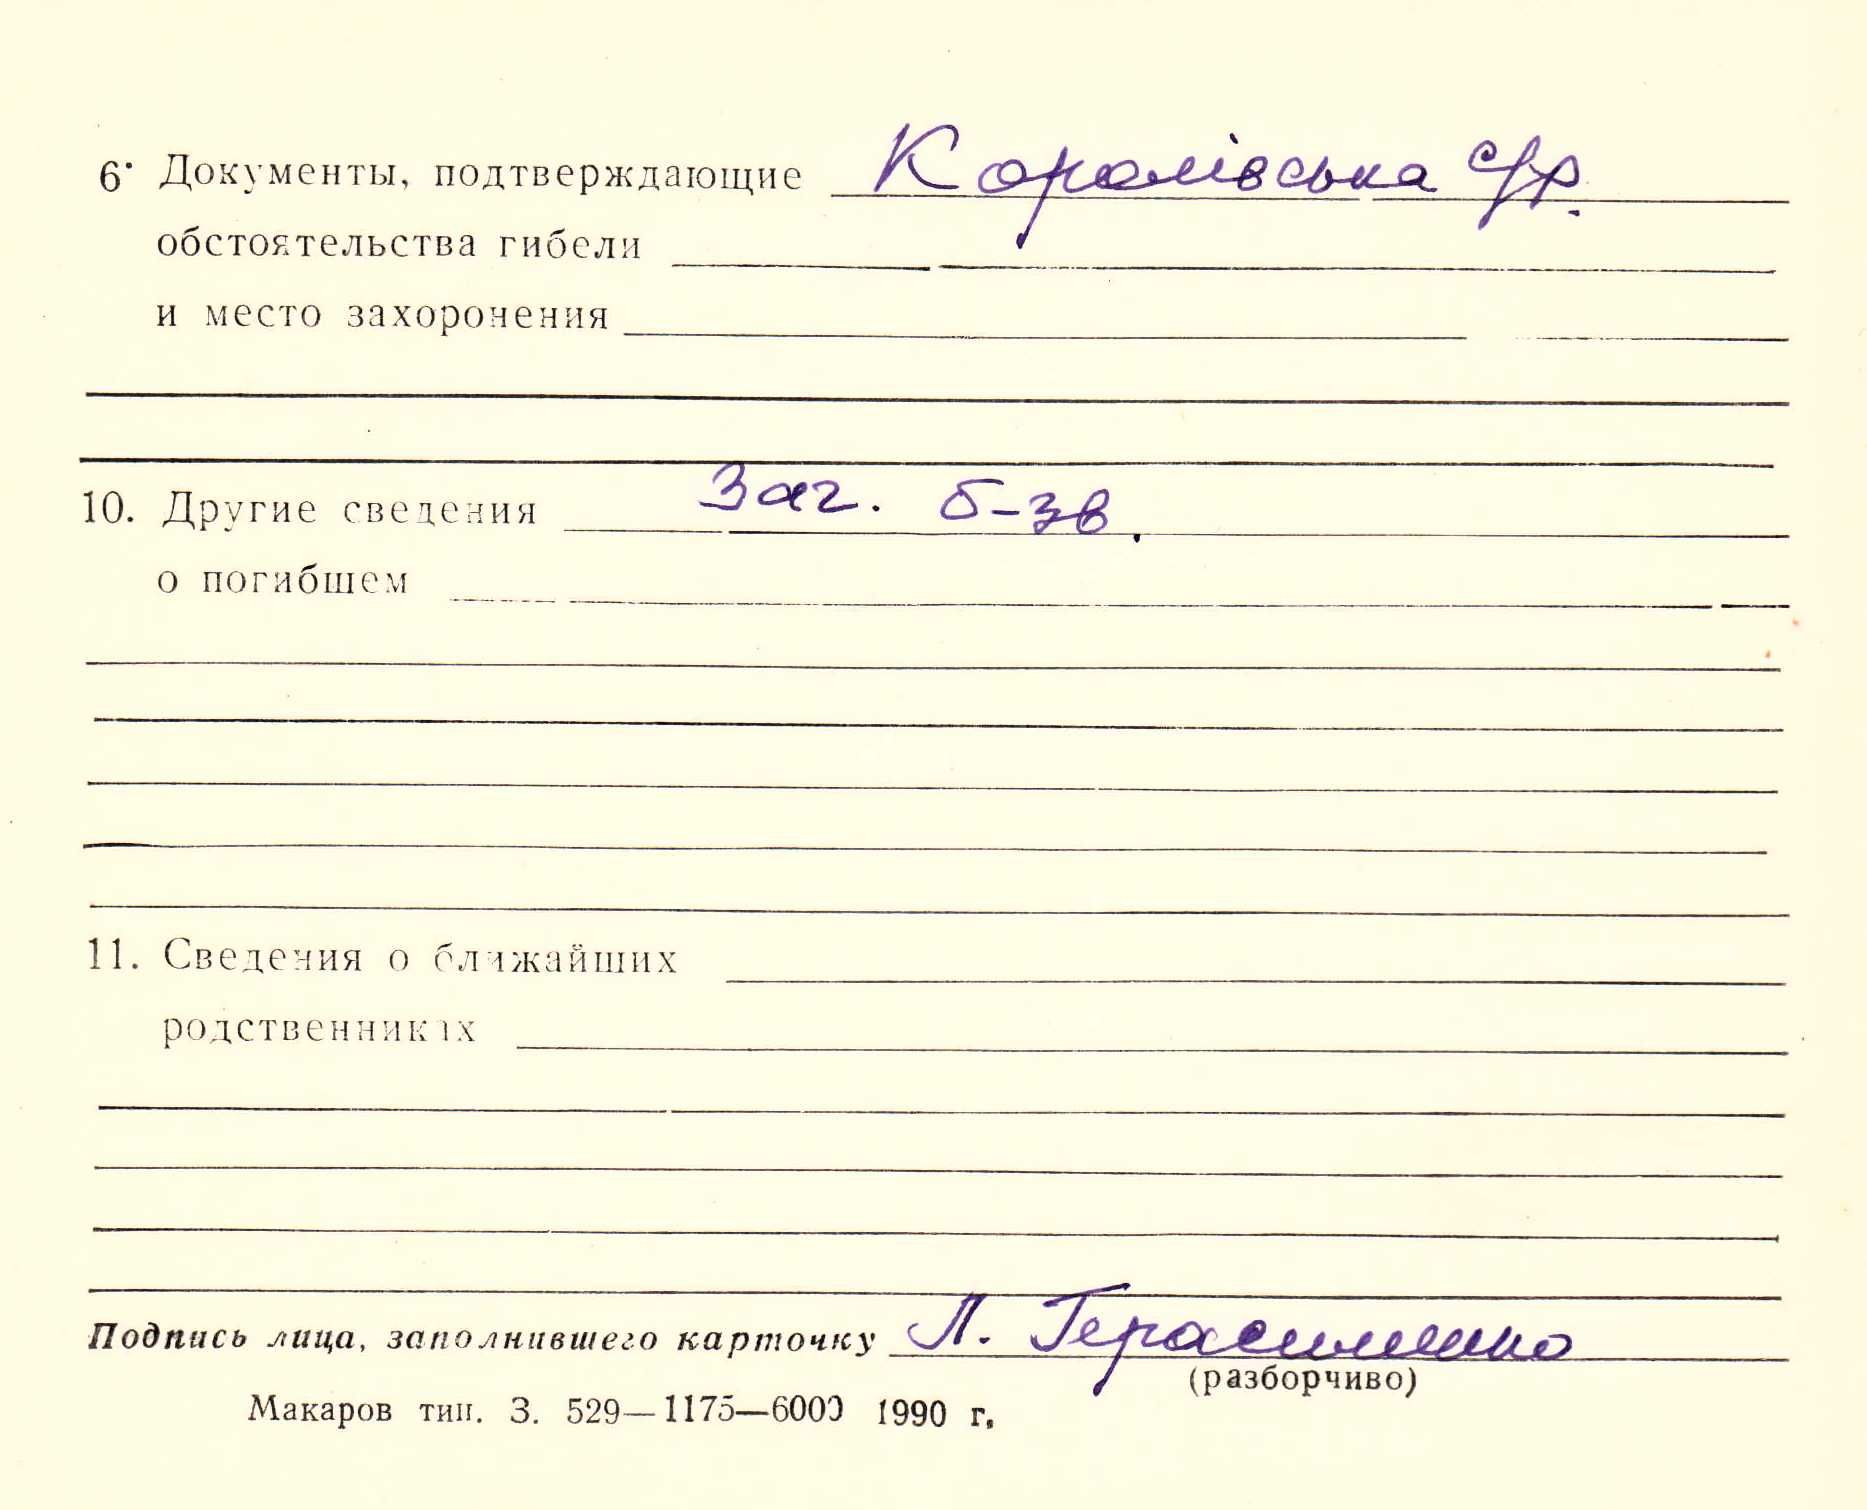 6. Документы, подтверждающие Королівська с/р.
обстоятельства гибели
и место захоронения
10. Другие сведения Заг. б-зв.
о погибшем
11. Сведения о ближайших
родственниках
Подпись лица, заполнившего карточку Л. Герасименко
(разборчиво)
Макаров тип. З. 529—1175—6000 1990 г.